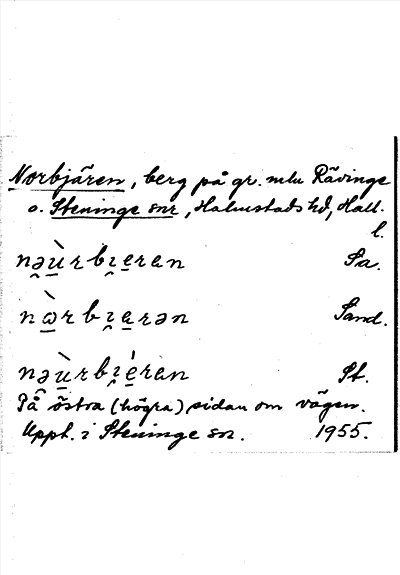 Norbjären, berg på gr. mlu Rävinge
o. Steninge snr, Halmstads hd, Hall.
l.
nə̯ù̱rbı̯e̱ran Sa.
nὼ̱rbı̯a̱rən Sand.
nə̯ù̱rbı̯é̱ran St.
På östra (högra) sidan om vägen.
Uppt. i Steninge sn. 1955.